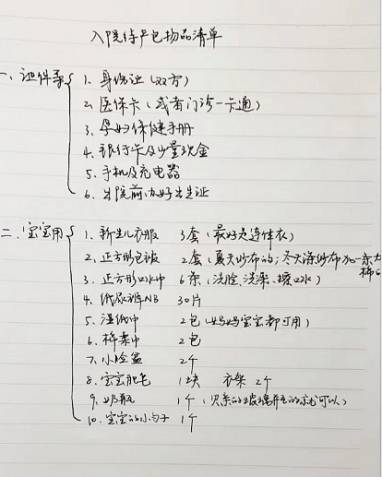 入院待产包物品清单
一、证件类
1. 身份证（双方）
2. 医保卡（或者门诊一卡通）
3. 孕妇保健手册
4. 银行卡及少量现金
5. 手机及充电器
6. 出院前办好出生证
二、宝宝用
1. 新生儿衣服 3套（最好是连体衣）
2. 正方形包被 2套（夏天纱布的；冬天涤纱布加一条大棉
3. 正方形口水巾 6条（洗脸、洗澡、擦口水）
4. 纸尿裤NB 30片
5. 湿纸巾 2包（妈妈宝宝都可用）
6. 棉柔巾 2包
7. 小脸盆 2个
8. 宝宝肚兜 1块 衣架 2个
9. 奶瓶 1个（贝亲的玻璃的就可以）
10. 宝宝的小勺子 1个